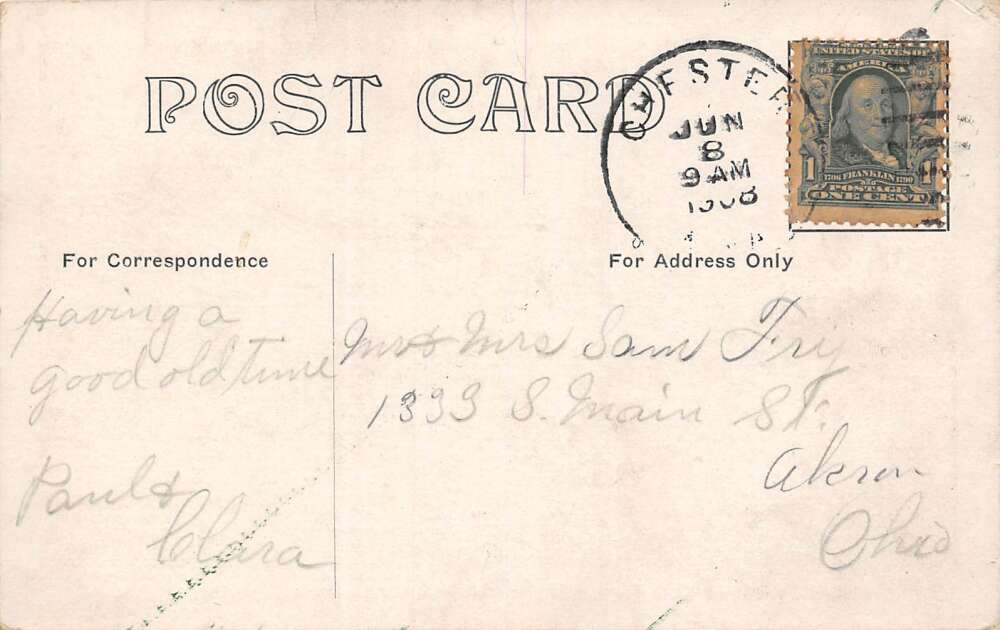 POST CARD
CHESTER
JUN
8
9 AM
1908
UNITED STATES OF
AMERICA
1706 FRANKLIN 1790
1 POSTAGE 1
ONE CENT
For Correspondence
For Address Only
Having a
good old time
Paul &
Clara
Mr & Mrs Sam Fry
1333 S. Main St.
Akron
Ohio